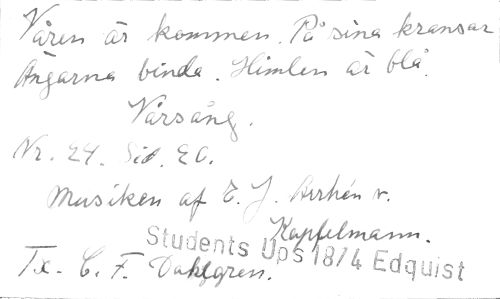 Våren är kommen. På sina kransar
Ängarna binda. Himlen är blå.
Vårsång.
Nr. 24. Sid. 20.
Musiken af E. J. Arrhén v.
Kapfelmann.
Students Ups 18/4 Edquist
Tx. C. F. Dahlgren.